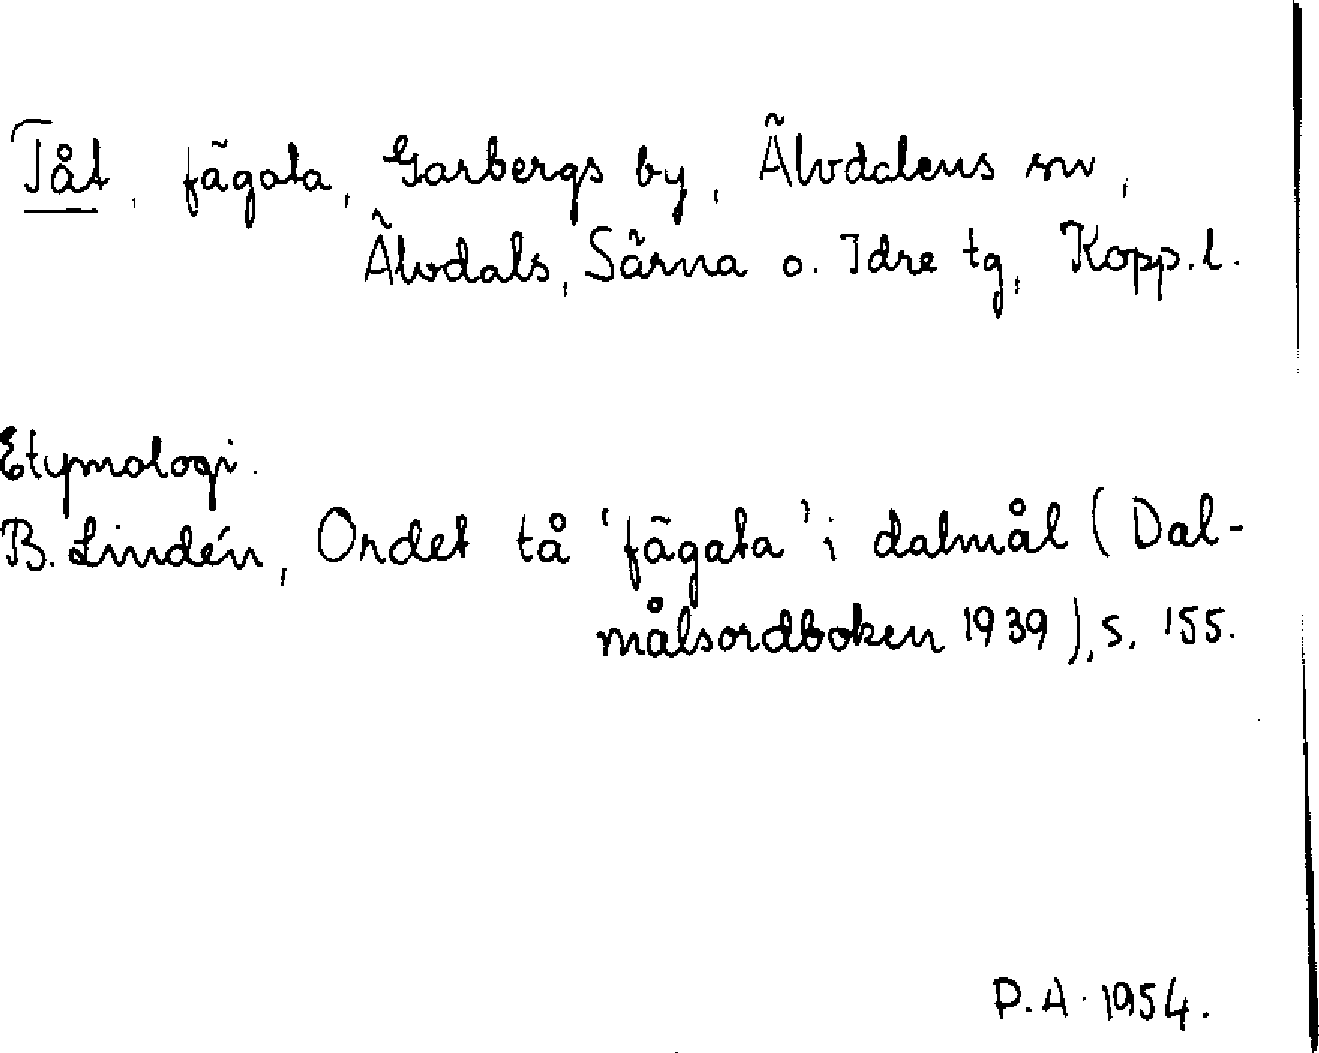 Tåt, fägata, Garbergs by, Älvdalens sn,
Älvdals, Särna o. Idre tg, Kopp. l.
Etymologi.
B. Lindén, Ordet tå 'fägata' i dalmål (Dal-
målsordboken 1939), s. 155.
P. A. 1954.